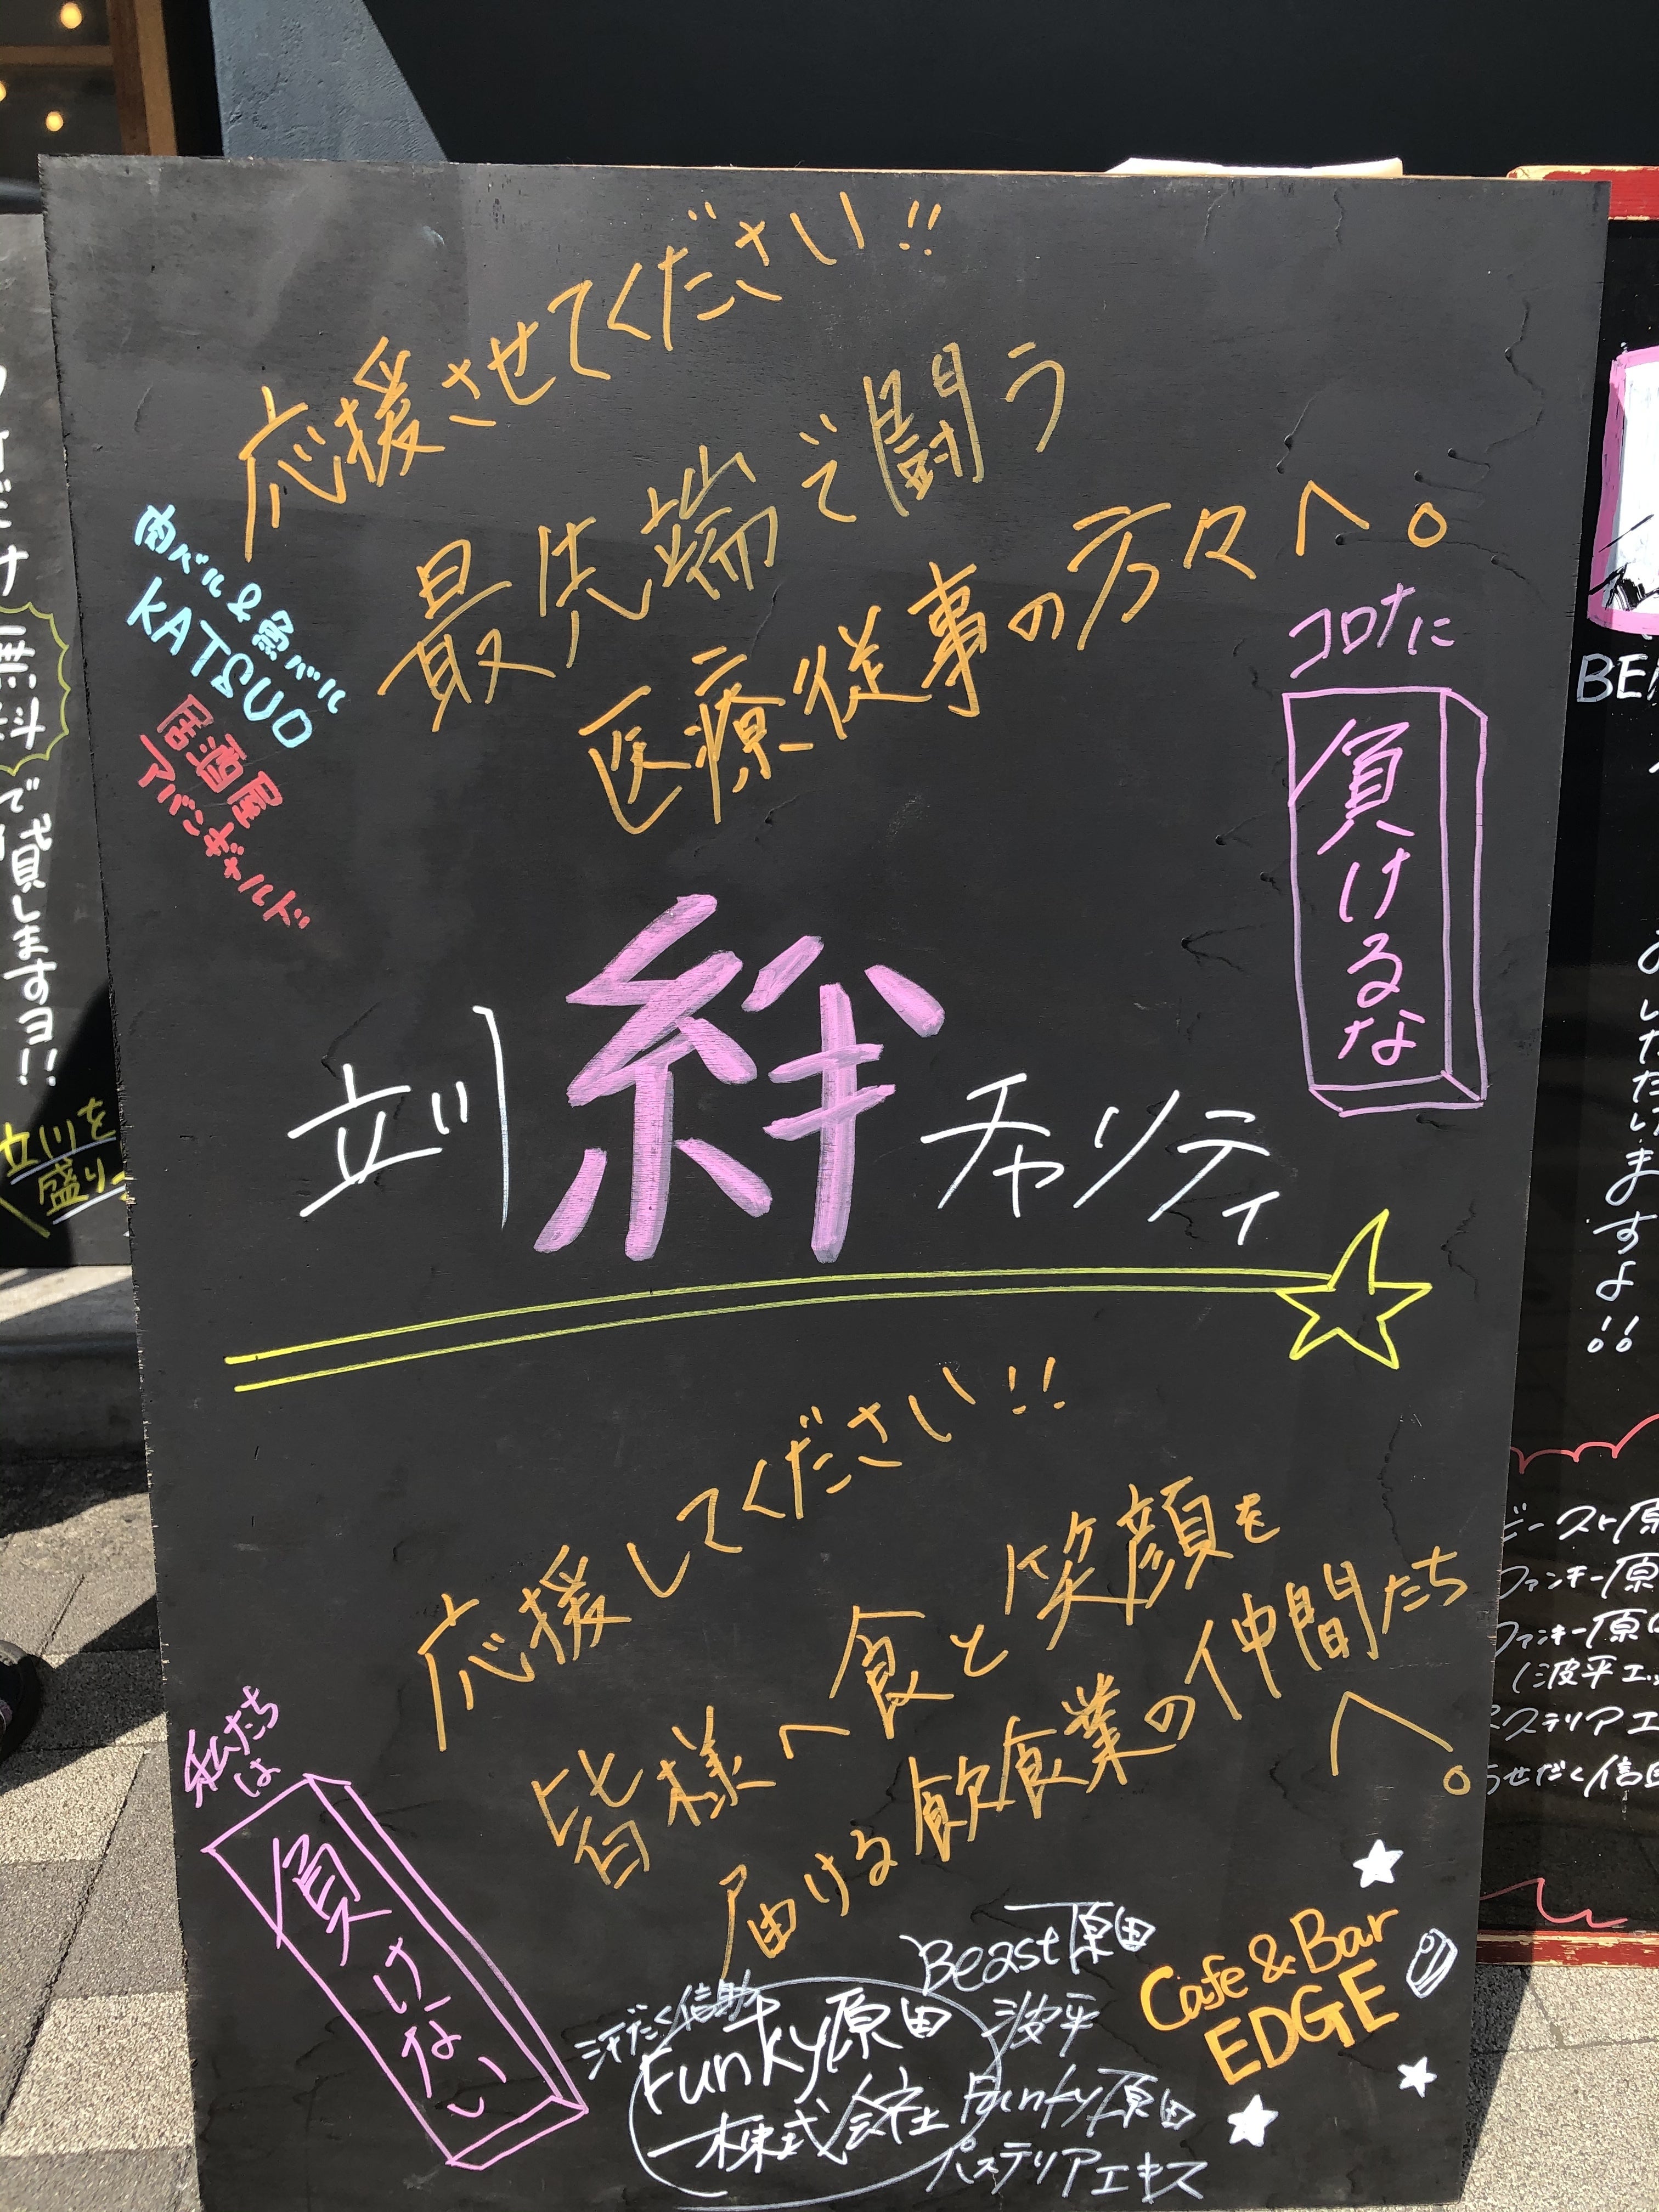 応援させてください!!
最先端で闘う
医療従事の方々へ。
肉バル&魚バル
KATSUO
居酒屋
アバンギャルド
コロナに
負けるな
立川絆チャリティ
応援してください!!
皆様へ食と笑顔を
届ける飲食業の仲間たち
へ。
私たち
は
負けない
Beast原田
波平
Funky原田
株式会社
Funky原田
パステリアエキス
Cafe & Bar
EDGE
無料
で貸しますヨ!!
立川を
盛り
いただけますよ!!
ビースト原
ファンキー原
ファンキー原田